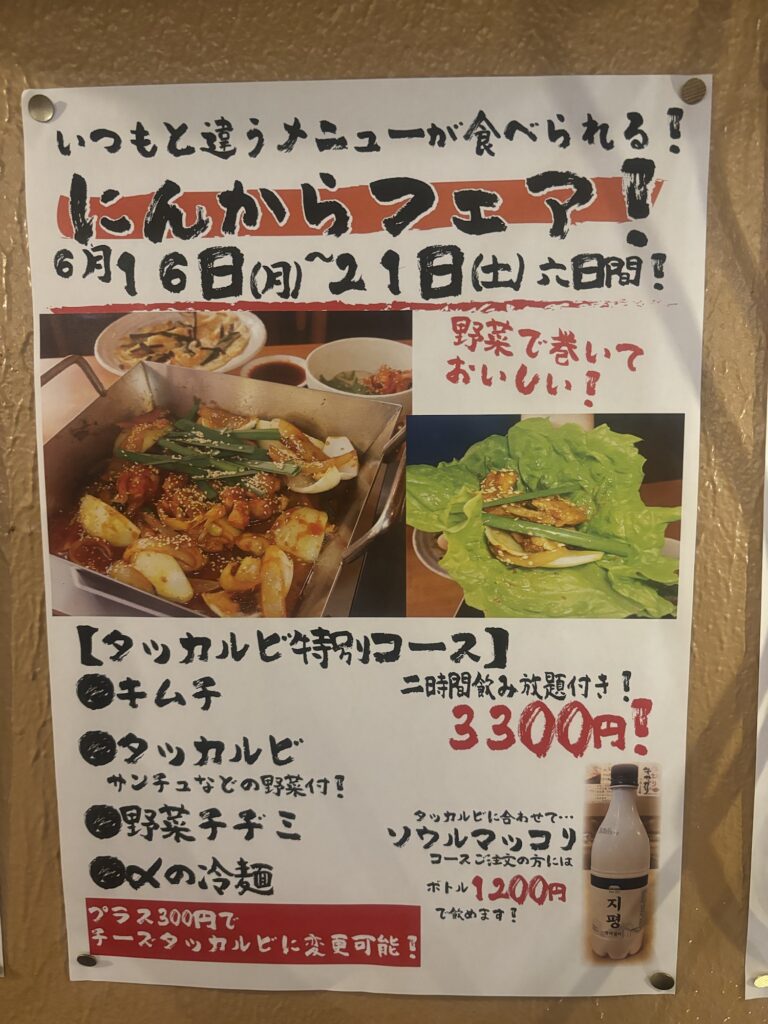 いつもと違うメニューが食べられる!
にんからフェア!
6月16日(月)~21日(土)六日間!
野菜で巻いて
おいしい!
【タッカルビ特別コース】
●キムチ
二時間飲み放題付き!
3300円!
●タッカルビ
サンチュなどの野菜付!
●野菜チヂミ
●αの冷麺
プラス300円で
チーズタッカルビに変更可能!
タッカルビに合わせて…
ソウルマッコリ
コースご注文の方には
ボトル1200円
で飲めます!
지평